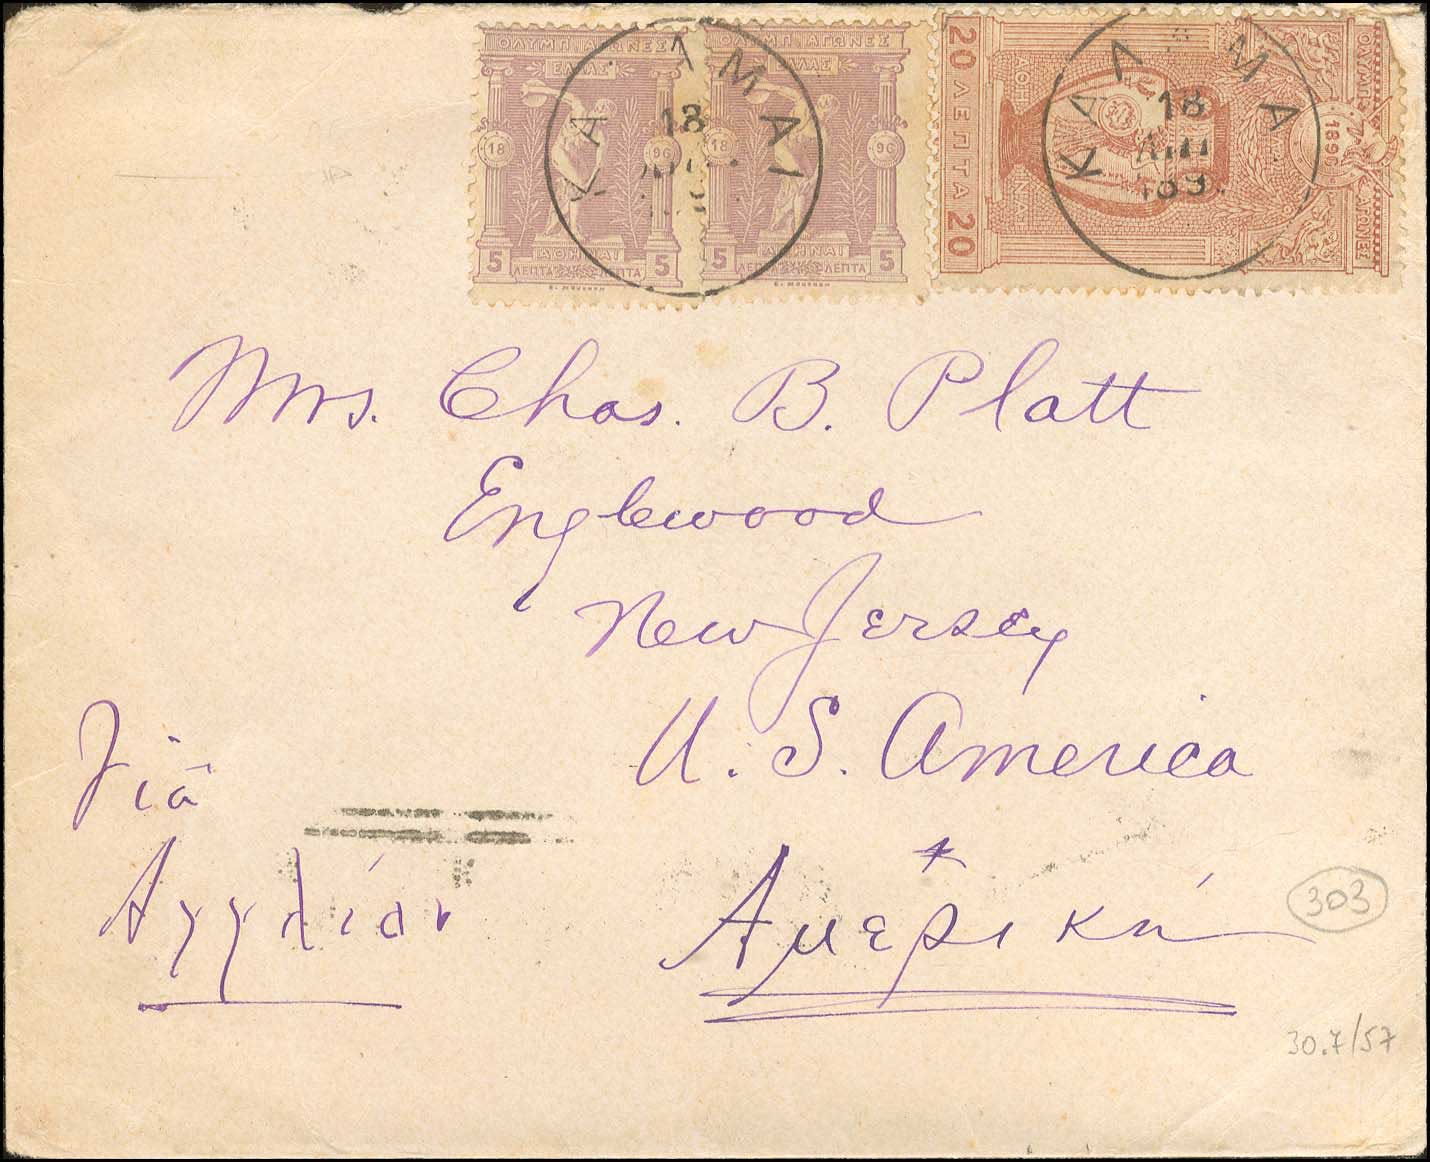 ΟΛΥΜΠ ΑΓΩΝΕΣ
ΕΛΛΑΣ
18 96
ΑΘΗΝΑΙ
5 ΛΕΠΤΑ ΛΕΠΤΑ 5
ΟΛΥΜΠ ΑΓΩΝΕΣ
ΕΛΛΑΣ
18 96
ΑΘΗΝΑΙ
5 ΛΕΠΤΑ ΛΕΠΤΑ 5
20 ΛΕΠΤΑ 20
1896
ΚΑΛΑΜΑΙ
18
ΚΑΛΑΜΑΙ
18
Mrs. Chas. B. Platt
Englewood
New Jersey
U. S. America
Διὰ
Αγγλίαν
Αμερικὴ
303
30.7/57